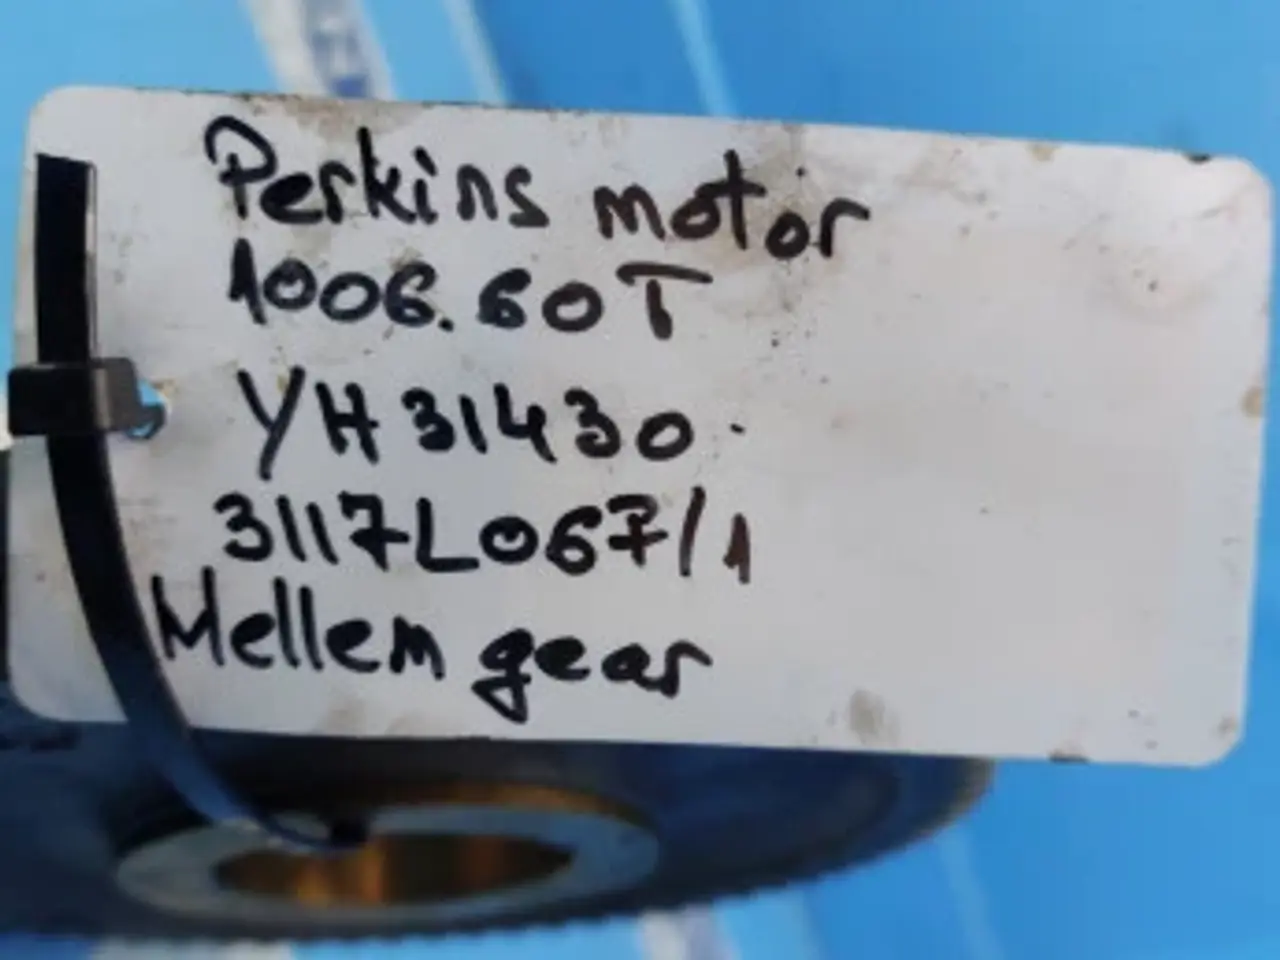 Perkins motor
1006.60T
YH31430
3117L067/1
Mellem gear